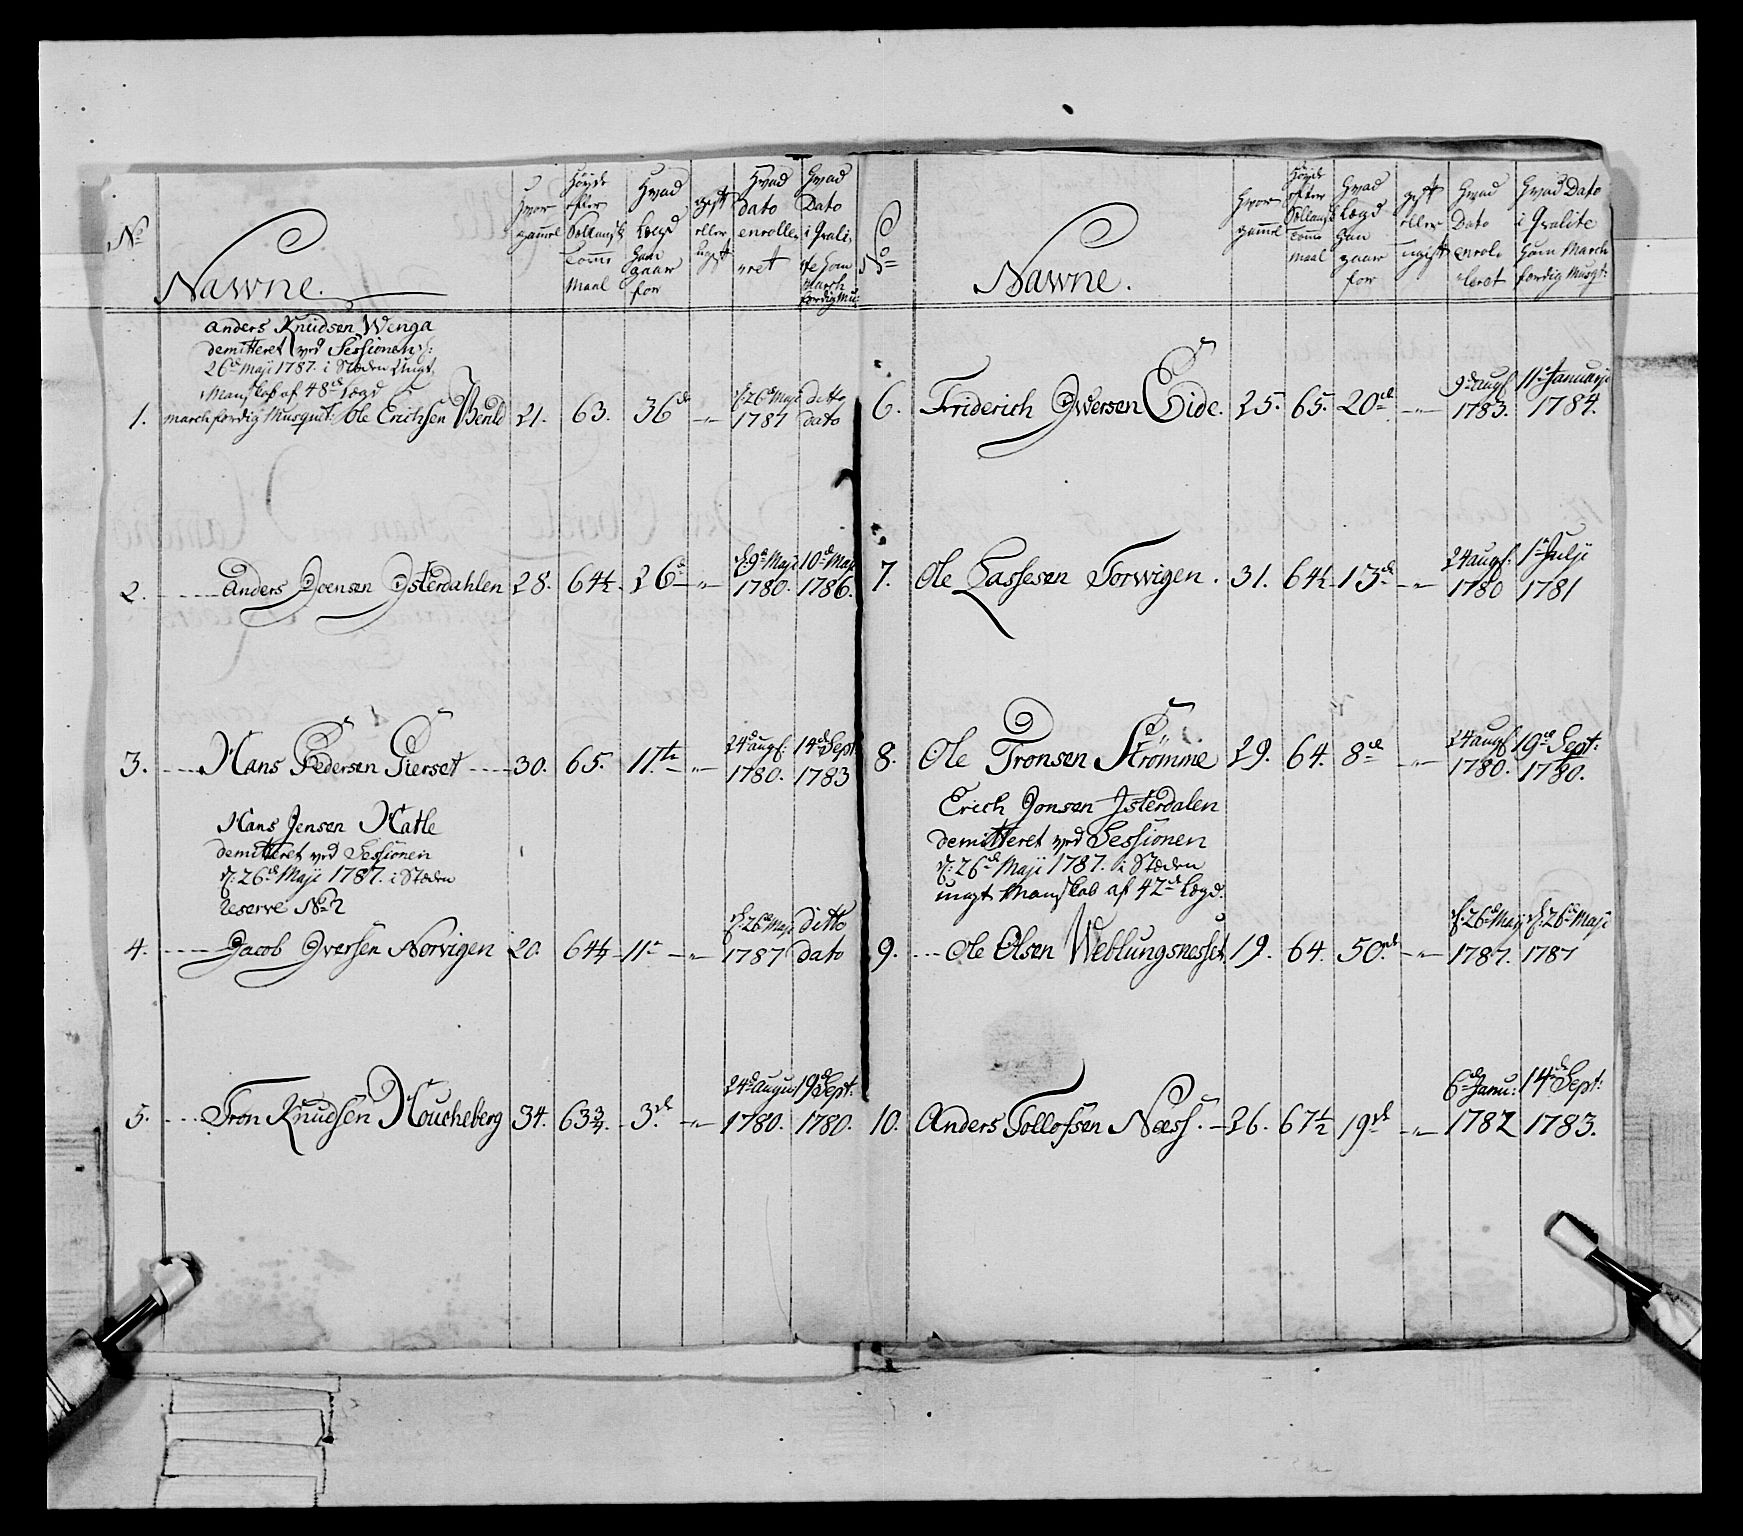 No
Nawne.
Hvor gammel
Høyde efter Sollansk Tomme Maal
Hvad Lægd Han gaar for
gift eller ugift
Hvad dato enrolleret
Hvad Dato i Qvalite som March færdig Mu:
anders Knudsen Wenga
demitteret ved Sessionen d:
26d Maji 1787. i Stæden Ungt
Manskab af 48d Lægd
1. marchfærdig Musqut: Ole Erichsen 21. 63. 36d -"- d: 26d Maji 1787 ditto dato
2. Anders Joensen Isterdahlen 28. 64½. 26d -"- d: 9d Maji 1780. 10d Maji 1786.
3. Hans Pedersen Gierset 30. 65. 11te -"- 24d augs: 1780. 14d Sept 1783
Hans Jensen Hatle
demitteret ved Sessionen
d: 26d Maji 1787. i Stæden
Reserve No 2
4. Jacob Iversen Norvigen 20. 64¼ 11 -"- d: 26d Maji 1787 ditto dato
5. Tron Knudsen Houcheberg 34. 63¾. 3de -"- 24d augus 1780. 19d Sept: 1780.
No
Nawne.
Hvor gammel
Høyde efter Sollansk Tomme Maal
Hvad Lægd Han gaar for
gift eller ugift
Hvad Dato enrolleret
Hvad Dato i Qvalite som March færdig Musqt:
6. Friderich Iversen Eide. 25. 65. 20de -"- 9d augs 1783. 11d Januarji 1784.
7. Ole Lassesen Torwigen. 31. 64½. 13de -"- 24 augs: 1780 1d Julji 1781
8. Ole Tronsen Strömme 29. 64. 8de -"- 24 augs 1780. 19d Sept: 1780.
Erich Jonsen Isterdalen
demitteret ved Sessionen
d: 26d Maji 1787. i Stæden
ungt Manskab af 42d Lægd.
9. Ole Olsen Weblungsnesset 19. 64. 50de -"- d: 26d Maji 1787. d: 26d Maji 1787
10. Anders Tollofsen Næss. 26. 67½ 19de -"- 6d Janu: 1782 14d Sept: 1783.